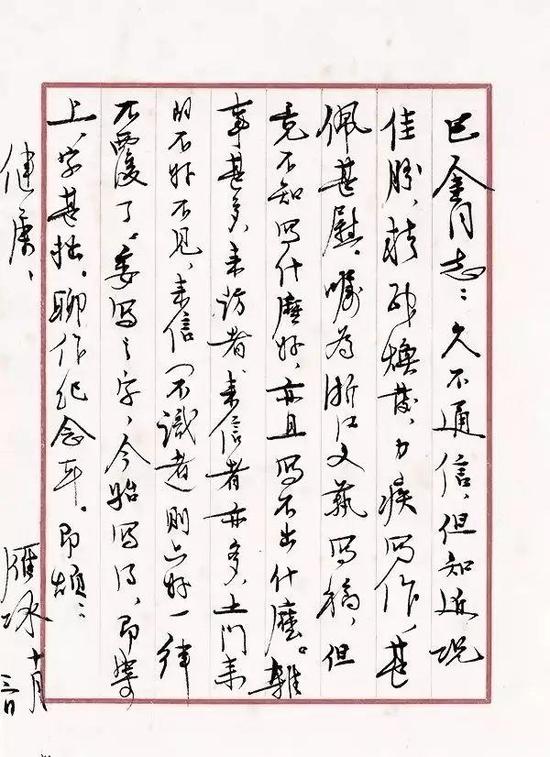 巴金同志：久不通信，但知近况
佳胜，精神焕发，力疾写作，甚
佩甚慰。嘱为浙江文艺写稿，但
竟不知写什麽好，亦且写不出什麽。杂
事甚多，来访者、来信者亦多，上门来
的不好不见，来信（不识者）则只好一律
不覆了。委写之字，今始写得，即寄
上，字甚拙，聊作纪念耳。即颂：
健康、
雁冰 十月
三日